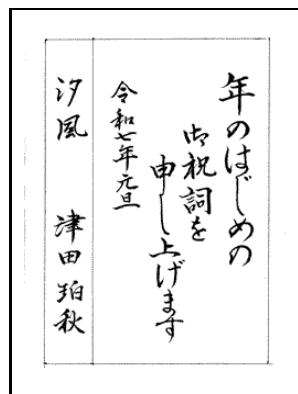 年のはじめの
御祝詞を
申し上げます
令和七年元旦
汐風　津田珀秋